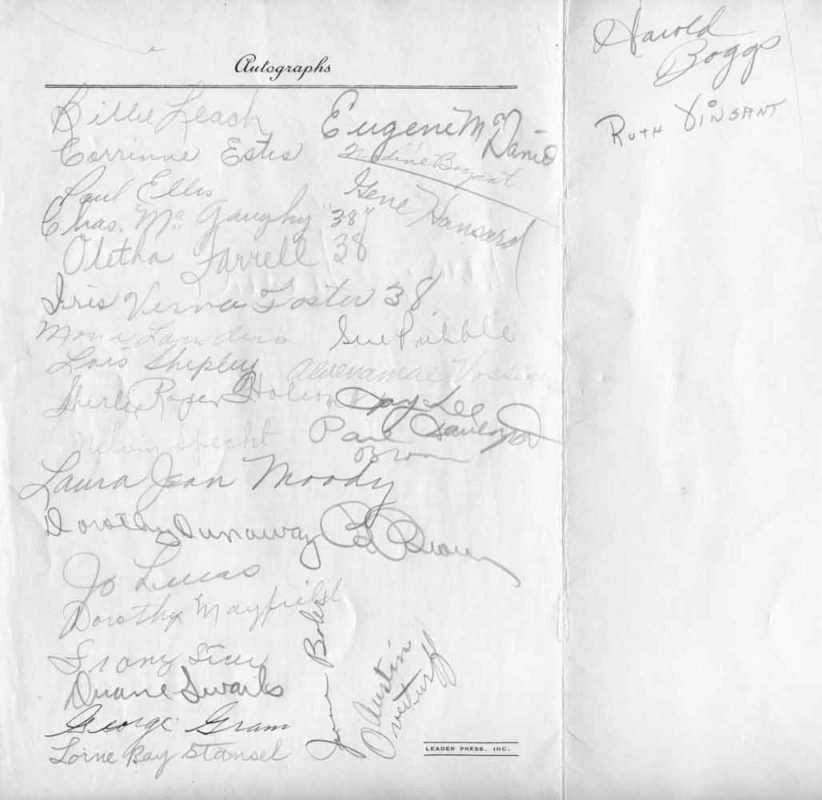 Autographs
Billie Leach
Corrinne Estes
Paul Ellis
Chas. McGaughy "38"
Oletha Farrell 38
Iris Verna Foster 38
Mona Landers
Lois Shipley
Shirley Roger Holcom
Melvin Specht
Laura Jean Moody
Dorothy Dunaway
Jo Lucas
Dorothy Mayfield
Duane Swarts
George Gram
Lorne Ray Stansel
Eugene McDaniel
Nadine Bryant
Gene Hansard
Sue Pribble
Alvenamae
Jay Lee
Paul
Brown
Bob Brown
Austin
Overturff
LEADER PRESS, INC.
Harold
Boggs
RUTH VINSANT